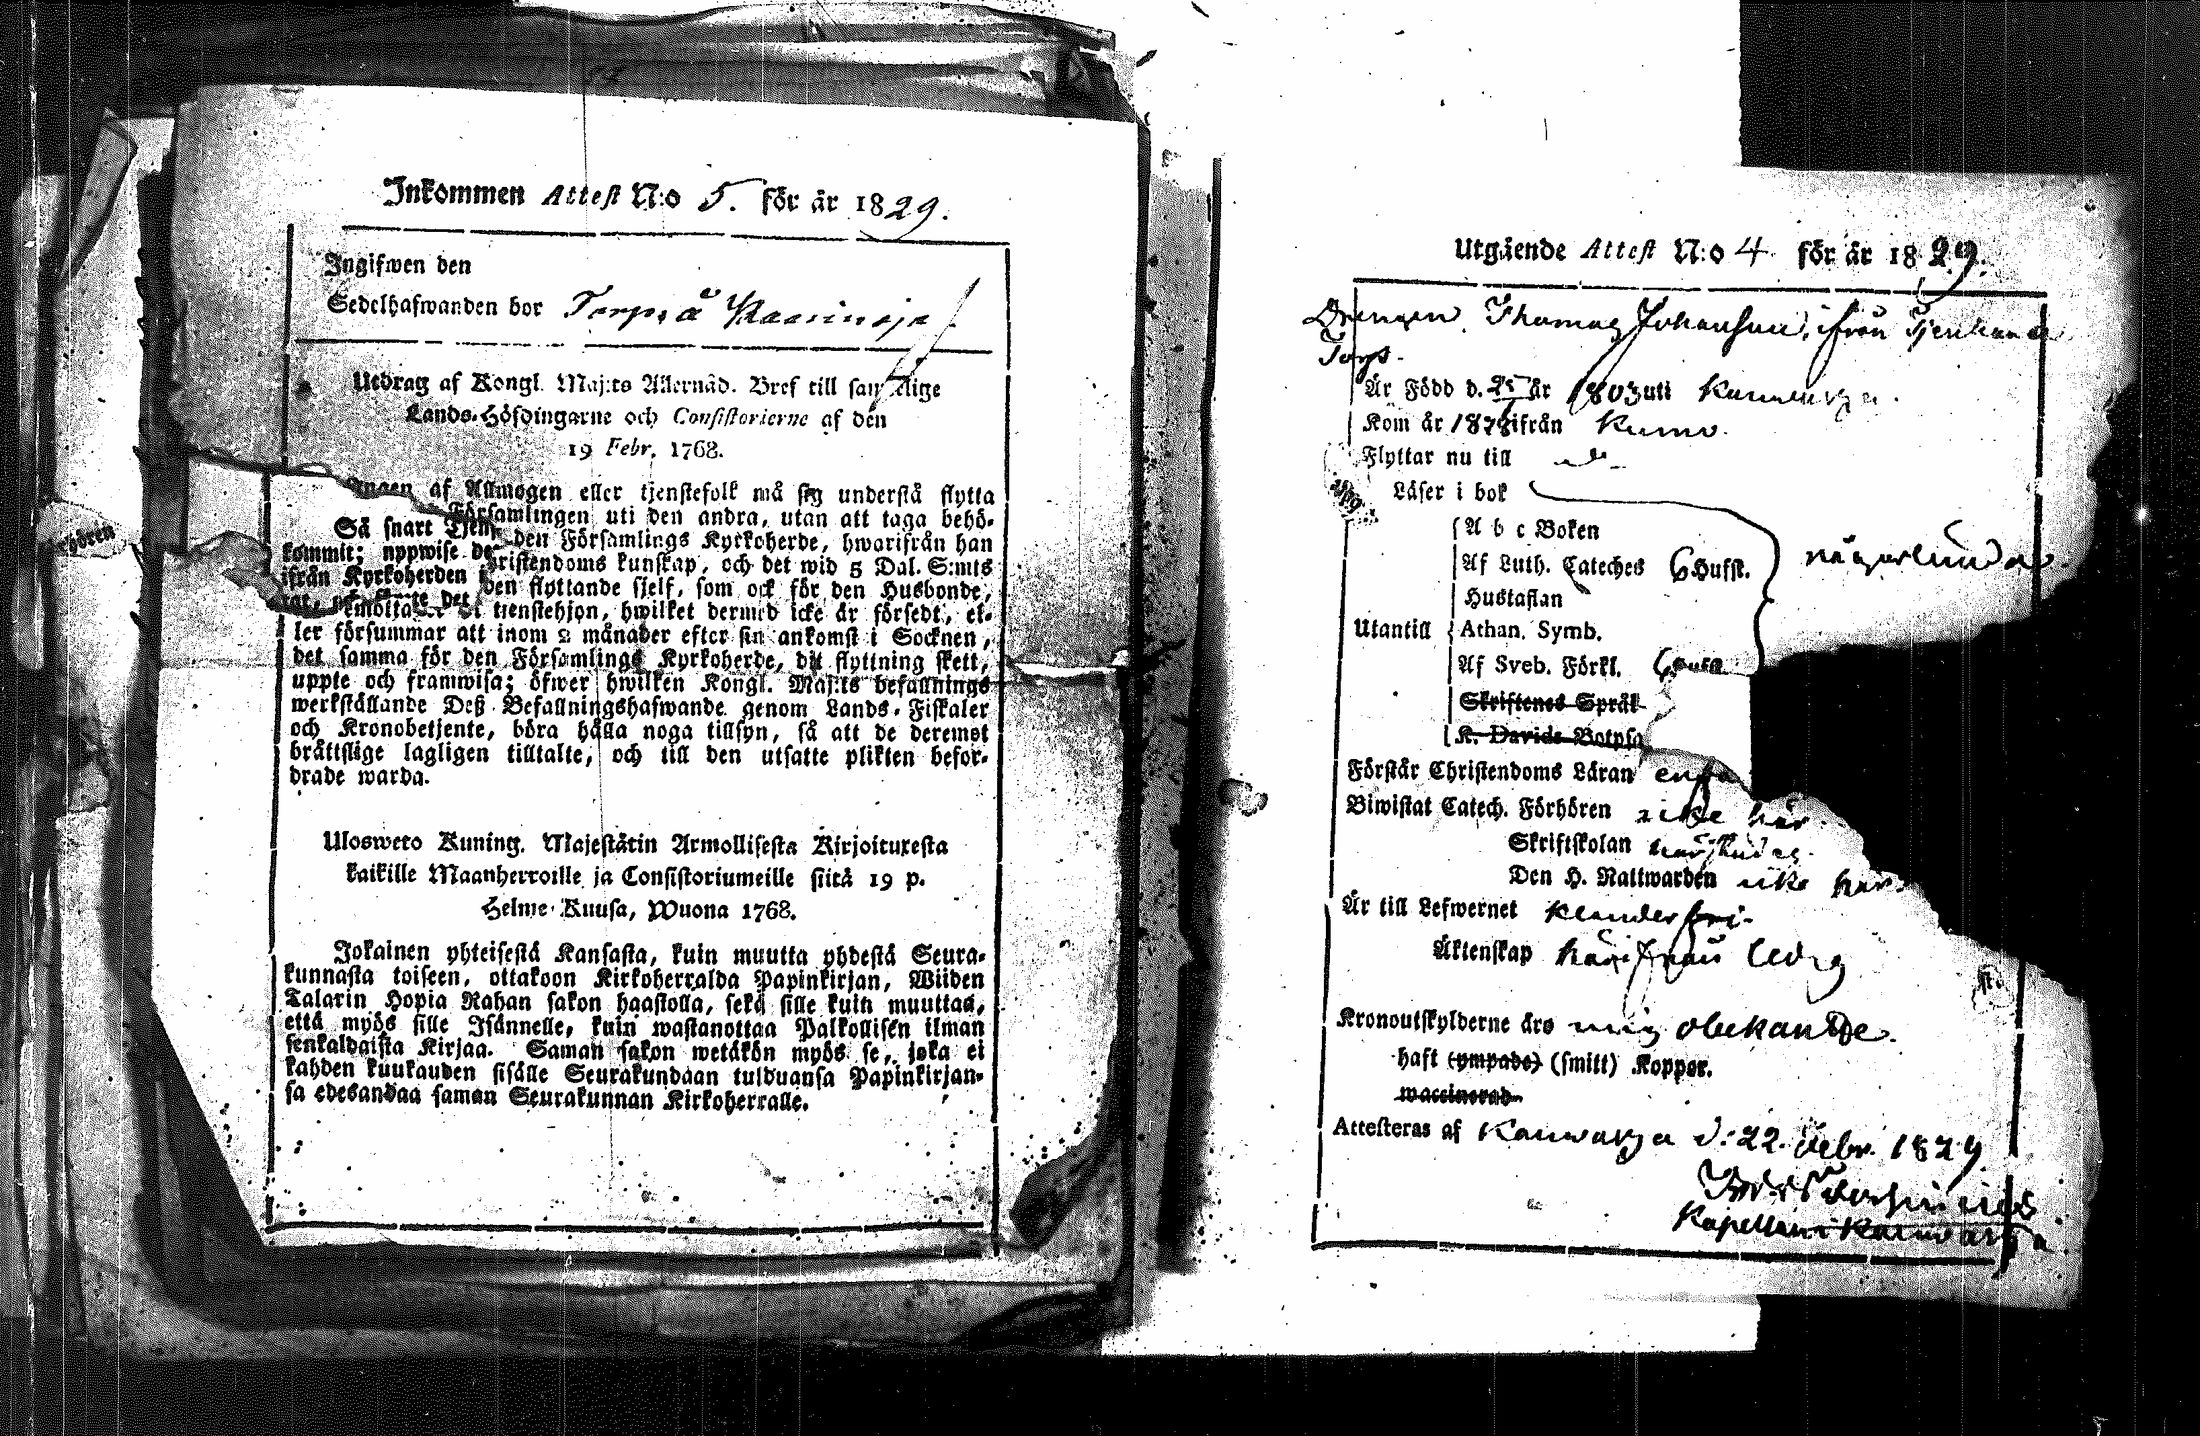 Inkommen Attest N:o 5. för år 1829.
Ingifwen den
Sedelhafwanden bor Torp å
Utdrag af Kongl. Maj:ts Allernåd. Bref till samtlige
Lands-Höfdingarne och Consistorierne af den
19 Febr. 1768.
Ingen af Allmogen eller tjenstefolk må sig understå flytta
Församlingen uti den andra, utan att taga behö-
Så snart Tjen
den Församlings Kyrkoherde, hwarifrån han
kommit; uppwise de
ristendoms kunskap, och det wid 5 Dal. S:mts
ifrån Kyrkoherden
den flyttande sjelf, som ock för den Husbonde,
tienstehjon, hwilket dermed icke är försedt, el-
ler försummar att inom 2 månader efter sin ankomst i Socknen,
det samma för den Församlings Kyrkoherde, dit flyttning skett,
uppte och framwisa; öfwer hwilken Kongl. Maj:ts befallnings
werkställande Deß Befallningshafwande genom Lands-Fiskaler
och Kronobetjente, böra hålla noga tillsyn, så att de deremot
bråttslige lagligen tilltalte, och till den utsatte plikten befor-
drade warda.
Ulosweto Kuning. Majestätin Armollisesta Kirjoituxesta
kaikille Maanherroille ja Consistoriumeille siitä 19 p.
Helme-Kuusa, Wuona 1768.
Jokainen yhteisestä Kansasta, kuin muutta yhdestä Seura-
kunnasta toiseen, ottakoon Kirkoherralda Papinkirjan, Wiiden
Talarin Hopia Rahan sakon haastolla, sekä sille kuin muuttaa,
että myös sille Isännelle, kuin wastanottaa Palkollisen ilman
senkaldaista Kirjaa. Saman sakon wetäkön myös se, joka ei
kahden kuukauden sisälle Seurakundaan tulduansa Papinkirjan-
sa edesandaa saman Seurakunnan Kirkoherralle.
Utgående Attest N:o 4 för år 1829.
Drengen Thomas Johansson, ifrån
Torp.
Är Född d. 25 år 1803 uti Kauwatza.
Kom år 1828 ifrån Kumo.
Flyttar nu till
Läser i bok
A b c Boken
Af Luth. Cateches 6 Hufst. någorlunda.
Hustaflan
Utantill Athan. Symb.
Af Sveb. Förkl.
Skriftenes Språk
K. Davids Botpsa
Förstår Christendoms Läran
Biwistat Catech. Förhören icke här.
Skriftskolan
Den H. Nattwarden icke här.
Är till Lefwernet klanderfri.
Äktenskap härifrån ledig
Kronoutskylderne äro mig obekante.
haft (ympade) (smitt) Koppor.
waccinerad
Attesteras af Kauwatza d: 22. Febr. 1829
Kapellan i Kauwatza